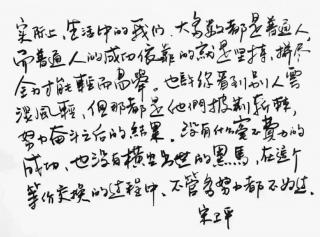 实际上，生活中的我们，大多数都是普通人，
而普通人的成功依靠的就是坚持，拼尽
全力才能轻而易举。也许你看到别人云
淡风轻，但那都是他們披荆斩棘，
努力奋斗之后的结果。没有什么毫不费力的
成功，也没有横空出世的黑馬，在这个
等价交换的过程中，不管多努力都不为过。
宋卫平